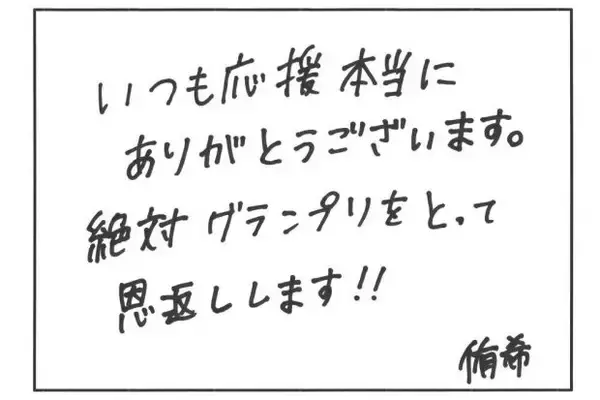 いつも応援本当に
ありがとうございます。
絶対グランプリをとって
恩返しします!!
侑希